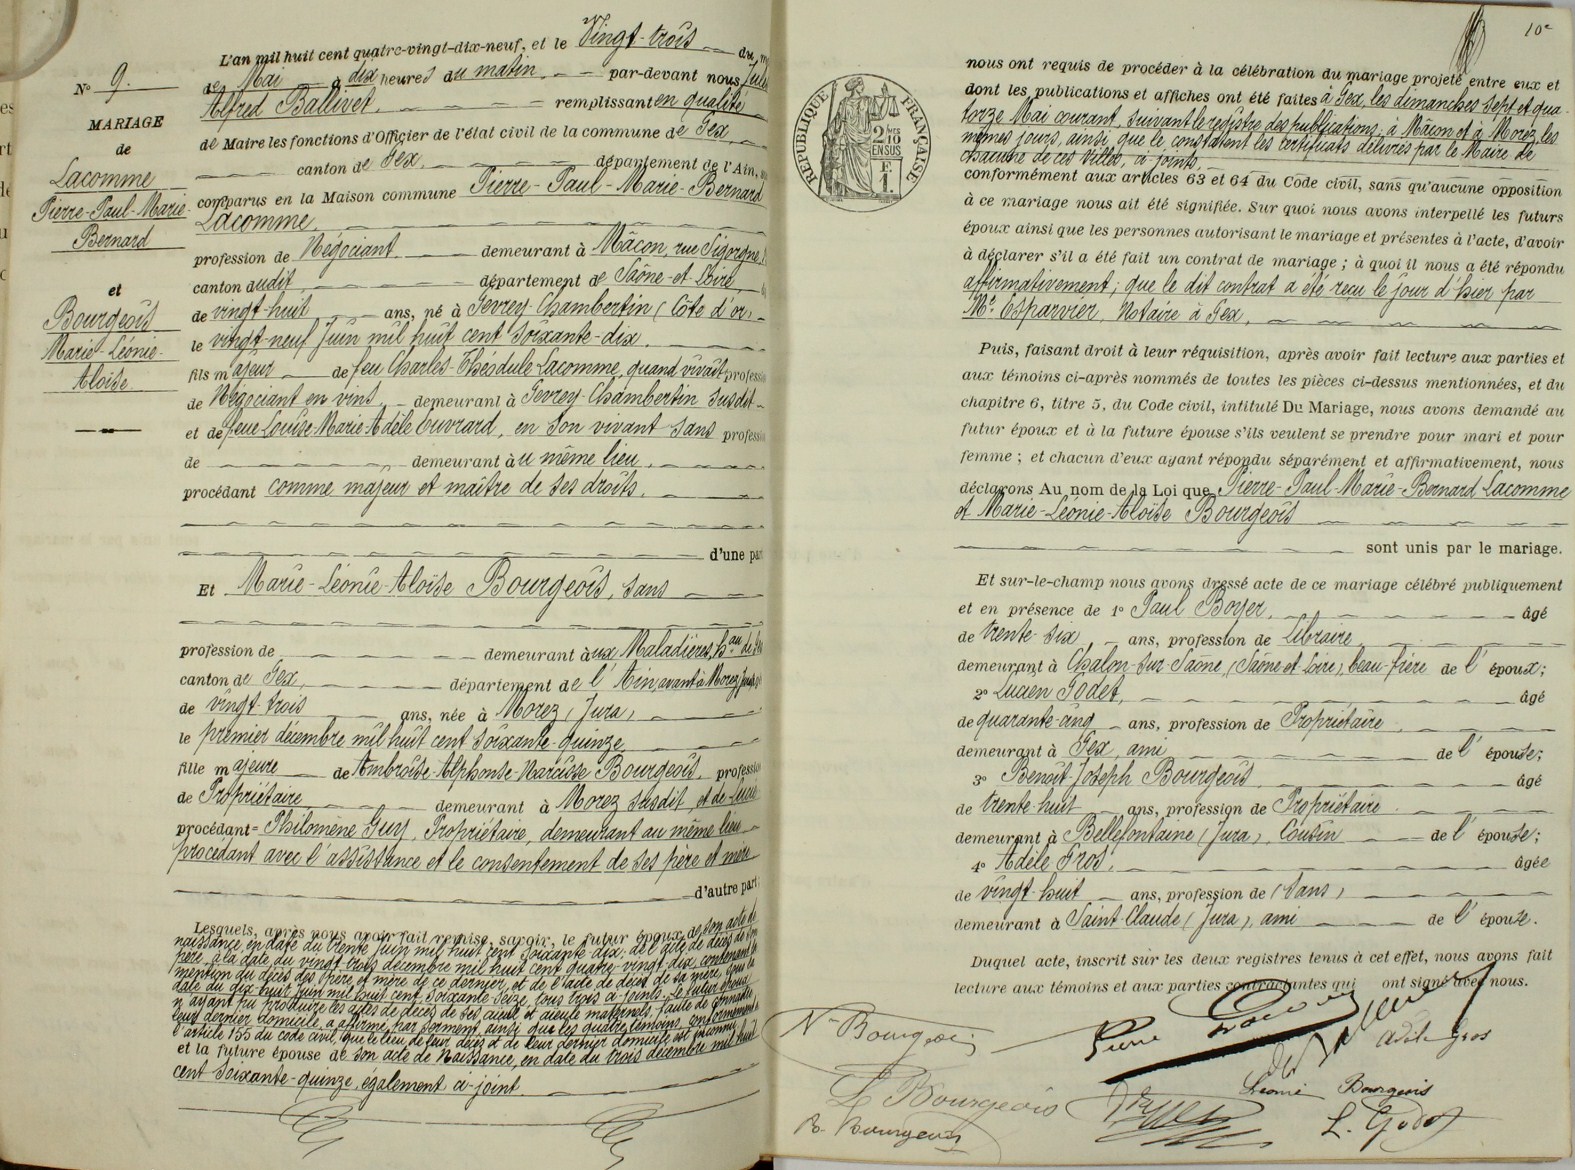 L'an mil huit cent quatre-vingt-dix-neuf, et le Vingt-trois du
de Mai à dix heures du matin. par-devant nous Jules
Alfred Ballivet, remplissant en qualité
de Maire les fonctions d'Officier de l'état civil de la commune de Gex,
canton de Gex, département de l'Ain,
comparus en la Maison commune Pierre-Paul-Marie-Bernard
Lacomme.
profession de Négociant demeurant à Mâcon, rue Sigorgne,
canton dudit, département de Saône-et-Loire,
de vingt-huit ans, né à Gevrey-Chambertin (Côte d'or)
le vingt-neuf Juin mil huit cent soixante-dix.
fils majeur de feu Charles-Théodule Lacomme, quand vivait profession
de Négociant en vins, demeurant à Gevrey-Chambertin susdit
et de feue Louise-Marie-Adèle Ouvrard, en son vivant sans profession
de demeurant au même lieu,
procédant comme majeur et maître de ses droits.
d'une part
Et Marie-Léonie-Aloïse Bourgeois, sans
profession de demeurant aux Maladières, hau de
canton de Gex, département de l'Ain, avant à Morez, Jura
de vingt-trois ans, née à Morez (Jura)
le premier décembre mil huit cent soixante-quinze
fille majeure de Ambroise-Alphonse-Narcisse Bourgeois, profession
de Propriétaire demeurant à Morez susdit, et de Lucie
procédant = Philomène Guy, Propriétaire, demeurant au même lieu
procédant avec l'assistance et le consentement de ses père et mère
d'autre part;
Lesquels, après nous avoir fait remise, savoir, le futur époux de son acte de
naissance, en date du trente Juin mil huit cent soixante-dix; de l'acte de décès de son
père, à la date du vingt-trois décembre mil huit cent quatre-vingt-dix, contenant la
mention du décès des père et mère de ce dernier, et de l'acte de décès de sa mère, sous la
date du dix-huit Juin mil huit cent soixante-seize, tous trois ci-joints. Le futur époux
n'ayant pu produire les actes de décès de ses aïeul et aïeule maternels, faute de connaître
leur dernier domicile, a affirmé par serment, ainsi que les quatre témoins, conformément à
l'article 155 du code civil, que le lieu de leur décès et de leur dernier domicile est inconnu,
et la future épouse de son acte de Naissance, en date du trois décembre mil huit
cent soixante-quinze, également ci-joint
No 9.
MARIAGE
de
Lacomme
Pierre-Paul-Marie-
Bernard
et
Bourgeois
Marie-Léonie-
Aloïse
10e
RÉPUBLIQUE FRANÇAISE
2/10 EN SUS
F. 1.
nous ont requis de procéder à la célébration du mariage projeté entre eux et
dont les publications et affiches ont été faites à Gex, les dimanches sept et qua-
torze Mai courant, suivant le registre des publications; à Mâcon et à Morez les
mêmes jours, ainsi que le constatent les certificats délivrés par le Maire de
chacune de ces villes, ci joints,
conformément aux articles 63 et 64 du Code civil, sans qu'aucune opposition
à ce mariage nous ait été signifiée. Sur quoi nous avons interpellé les futurs
époux ainsi que les personnes autorisant le mariage et présentes à l'acte, d'avoir
à déclarer s'il a été fait un contrat de mariage; à quoi il nous a été répondu
affirmativement; que le dit contrat a été reçu le jour d'hier par
Me Esparvier, Notaire à Gex,
Puis, faisant droit à leur réquisition, après avoir fait lecture aux parties et
aux témoins ci-après nommés de toutes les pièces ci-dessus mentionnées, et du
chapitre 6, titre 5, du Code civil, intitulé Du Mariage, nous avons demandé au
futur époux et à la future épouse s'ils veulent se prendre pour mari et pour
femme; et chacun d'eux ayant répondu séparément et affirmativement, nous
déclarons Au nom de la Loi que Pierre-Paul-Marie-Bernard Lacomme
et Marie-Léonie-Aloïse Bourgeois
sont unis par le mariage.
Et sur-le-champ nous avons dressé acte de ce mariage célébré publiquement
et en présence de 1º Paul Boyer, âgé
de trente-six ans, profession de Libraire
demeurant à Chalon-sur-Saône (Saône et Loire), beau-frère de l'époux;
2º Lucien Godet, âgé
de quarante-cinq ans, profession de Propriétaire
demeurant à Gex, ami de l'épouse;
3º Benoît-Joseph Bourgeois âgé
de trente-huit ans, profession de Propriétaire
demeurant à Bellefontaine (Jura), Cousin de l'épouse;
4º Adèle Gros, âgée
de vingt-huit ans, profession de (sans)
demeurant à Saint-Claude (Jura), ami de l'épouse.
Duquel acte, inscrit sur les deux registres tenus à cet effet, nous avons fait
lecture aux témoins et aux parties contractantes qui ont signé avec nous.
N Bourgeois
Pierre Lacomme
Adèle Gros
L Bourgeois
Léonie Bourgeois
B. Bourgeois
L. Godet